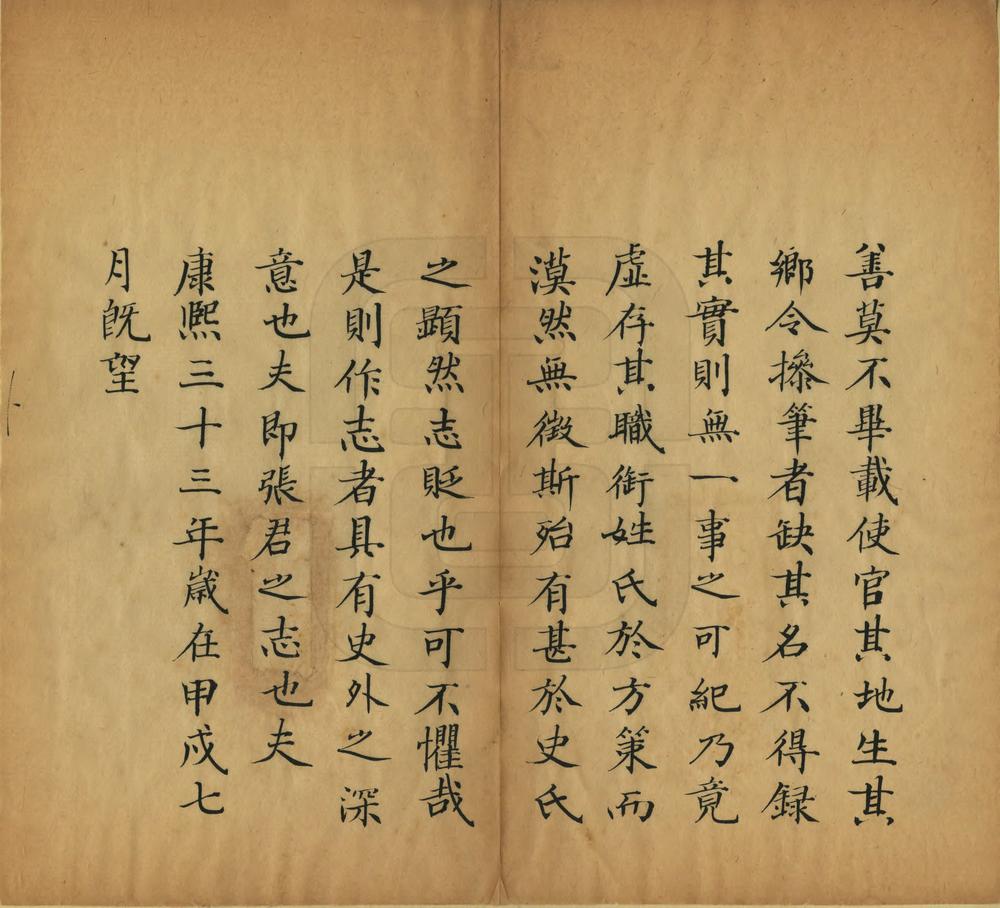 善莫不畢載使官其地生其
鄉令操筆者缺其名不得録
其實則無一事之可紀乃竟
虛存其職銜姓氏於方策而
漠然無徵斯殆有甚於史氏
之顯然志貶也乎可不懼哉
是則作志者具有史外之深
意也夫即張君之志也夫
康熈三十三年嵗在甲戍七
月旣望